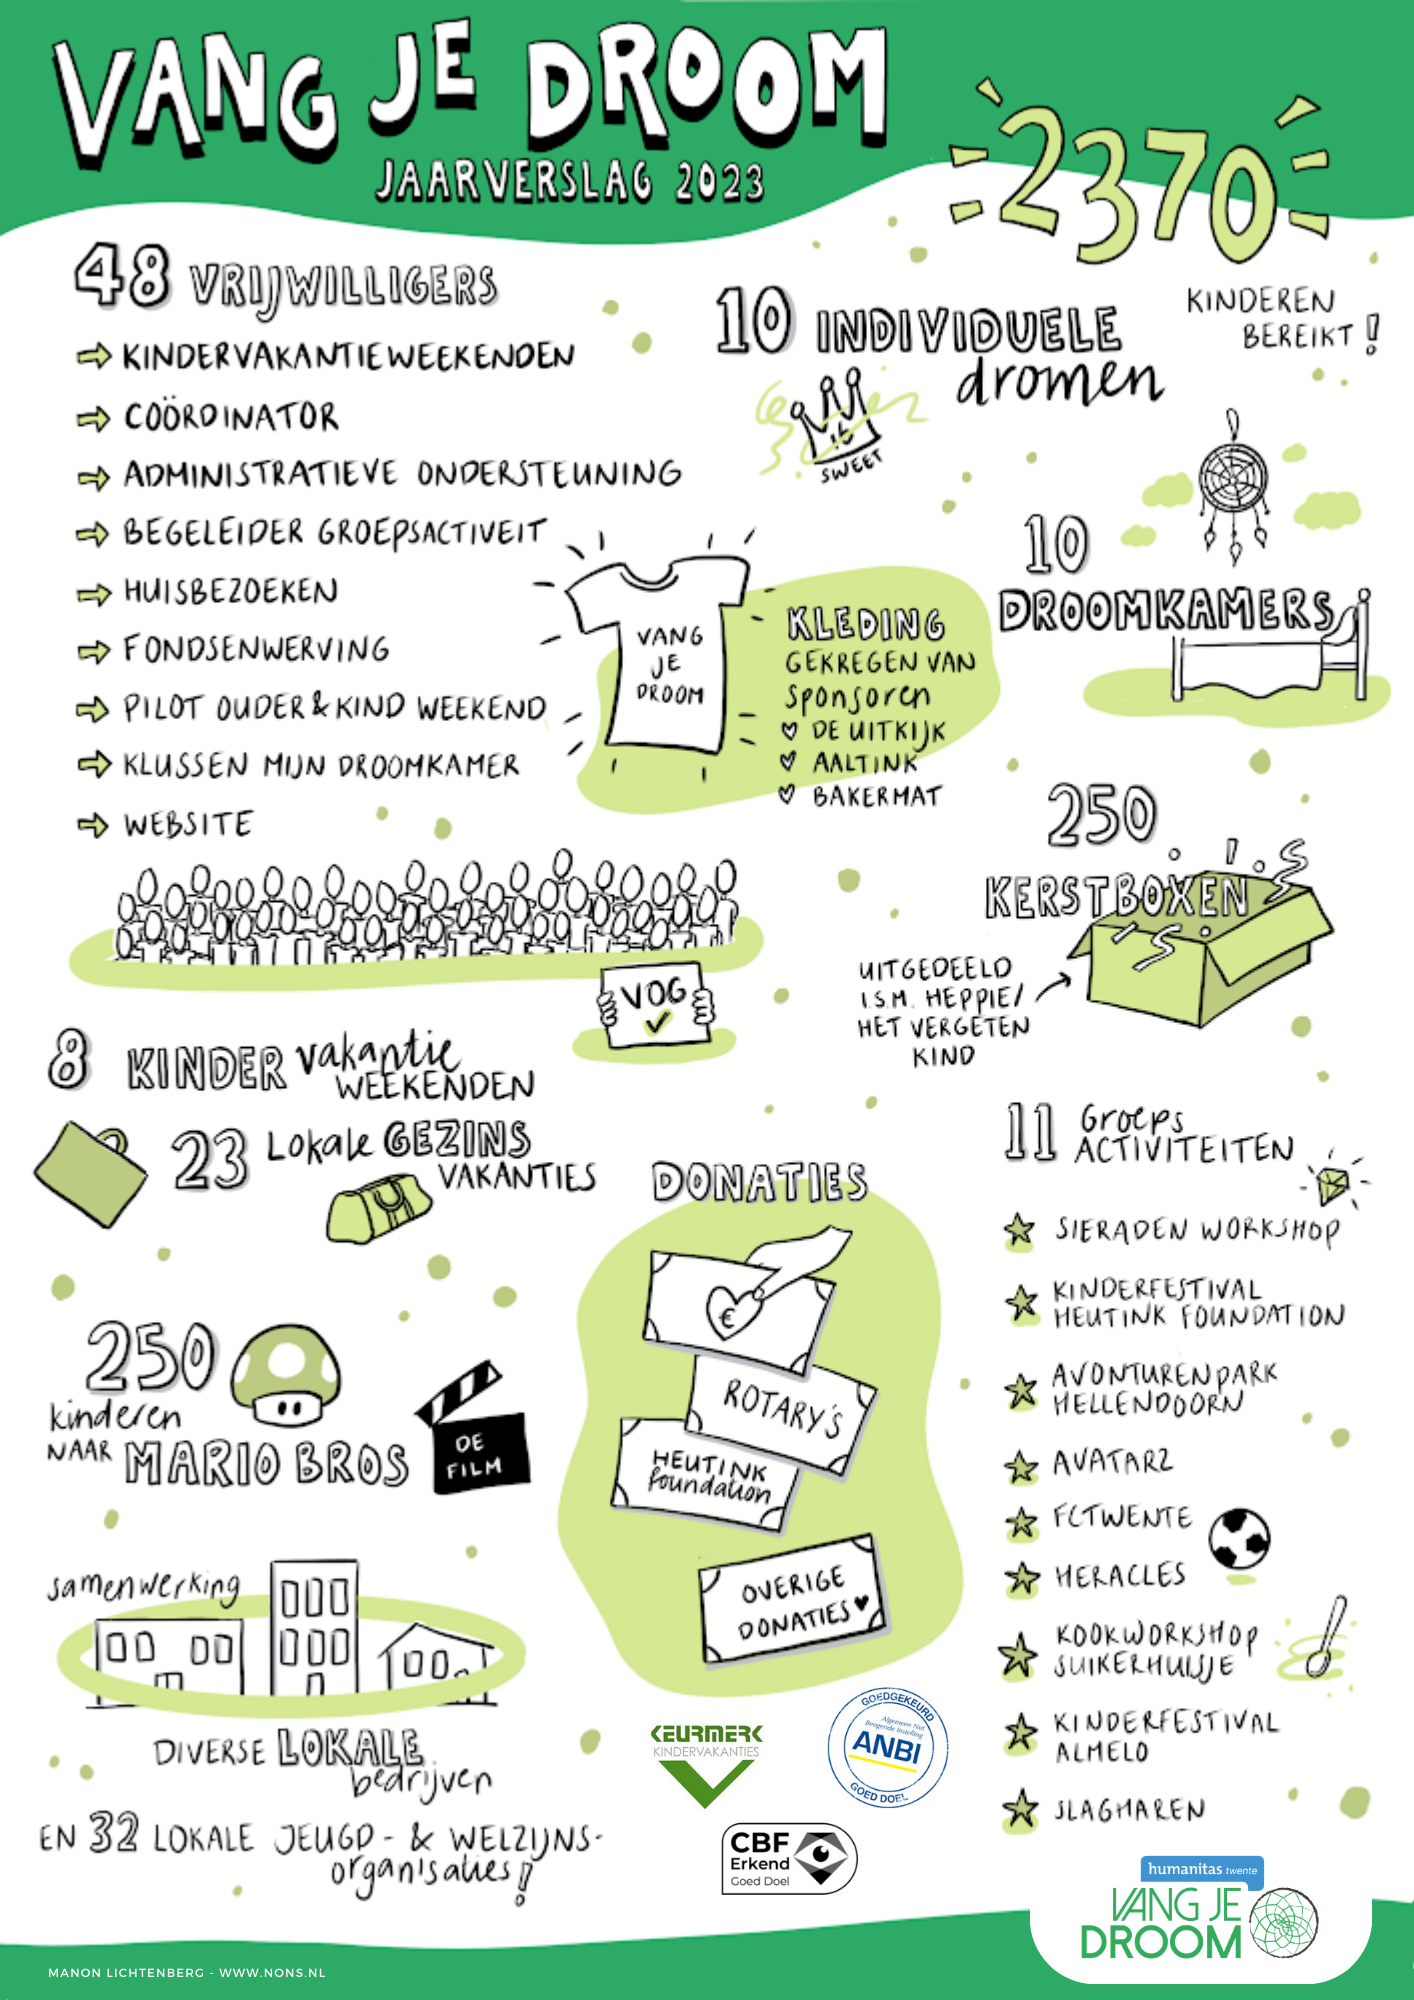 VANG JE DROOM
JAARVERSLAG 2023
2370
KINDEREN
BEREIKT!
48 VRIJWILLIGERS
KINDERVAKANTIEWEEKENDEN
COÖRDINATOR
ADMINISTRATIEVE ONDERSTEUNING
BEGELEIDER GROEPSACTIVEIT
HUISBEZOEKEN
FONDSENWERVING
PILOT OUDER & KIND WEEKEND
KLUSSEN MIJN DROOMKAMER
WEBSITE
VOG
10 INDIVIDUELE
dromen
SWEET
16
VANG
JE
DROOM
KLEDING
GEKREGEN VAN
sponsoren
DE UITKIJK
AALTINK
BAKERMAT
10
DROOMKAMERS
250
KERSTBOXEN
UITGEDEELD
I.S.M. HEPPIE/
HET VERGETEN
KIND
8 KINDER vakantie
WEEKENDEN
23 Lokale GEZINS
VAKANTIES
250
kinderen
NAAR MARIO BROS
DE
FILM
samenwerking
DIVERSE LOKALE
bedrijven
EN 32 LOKALE JEUGD- & WELZIJNS-
organisaties!
DONATIES
€
ROTARY'S
HEUTINK
foundation
OVERIGE
DONATIES
11 Groeps
ACTIVITEITEN
SIERADEN WORKSHOP
KINDERFESTIVAL
HEUTINK FOUNDATION
AVONTURENPARK
HELLENDOORN
AVATARZ
FCTWENTE
HERACLES
KOOKWORKSHOP
SUIKERHUISJE
KINDERFESTIVAL
ALMELO
SLAGHAREN
KEURMERK
KINDERVAKANTIES
GOEDGEKEURD
Algemeen Nut
Beogende Instelling
ANBI
GOED DOEL
CBF
Erkend
Goed Doel
humanitas twente
VANG JE
DROOM
MANON LICHTENBERG - WWW.NONS.NL